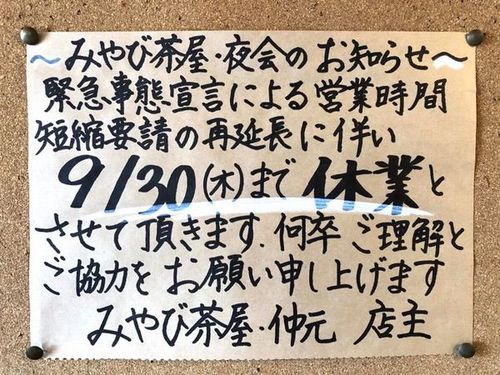 ～みやび茶屋・夜会のお知らせ～
緊急事態宣言による営業時間
短縮要請の再延長に伴い
9/30(木)まで休業と
させて頂きます.何卒ご理解と
ご協力をお願い申し上げます
みやび茶屋・仲元 店主